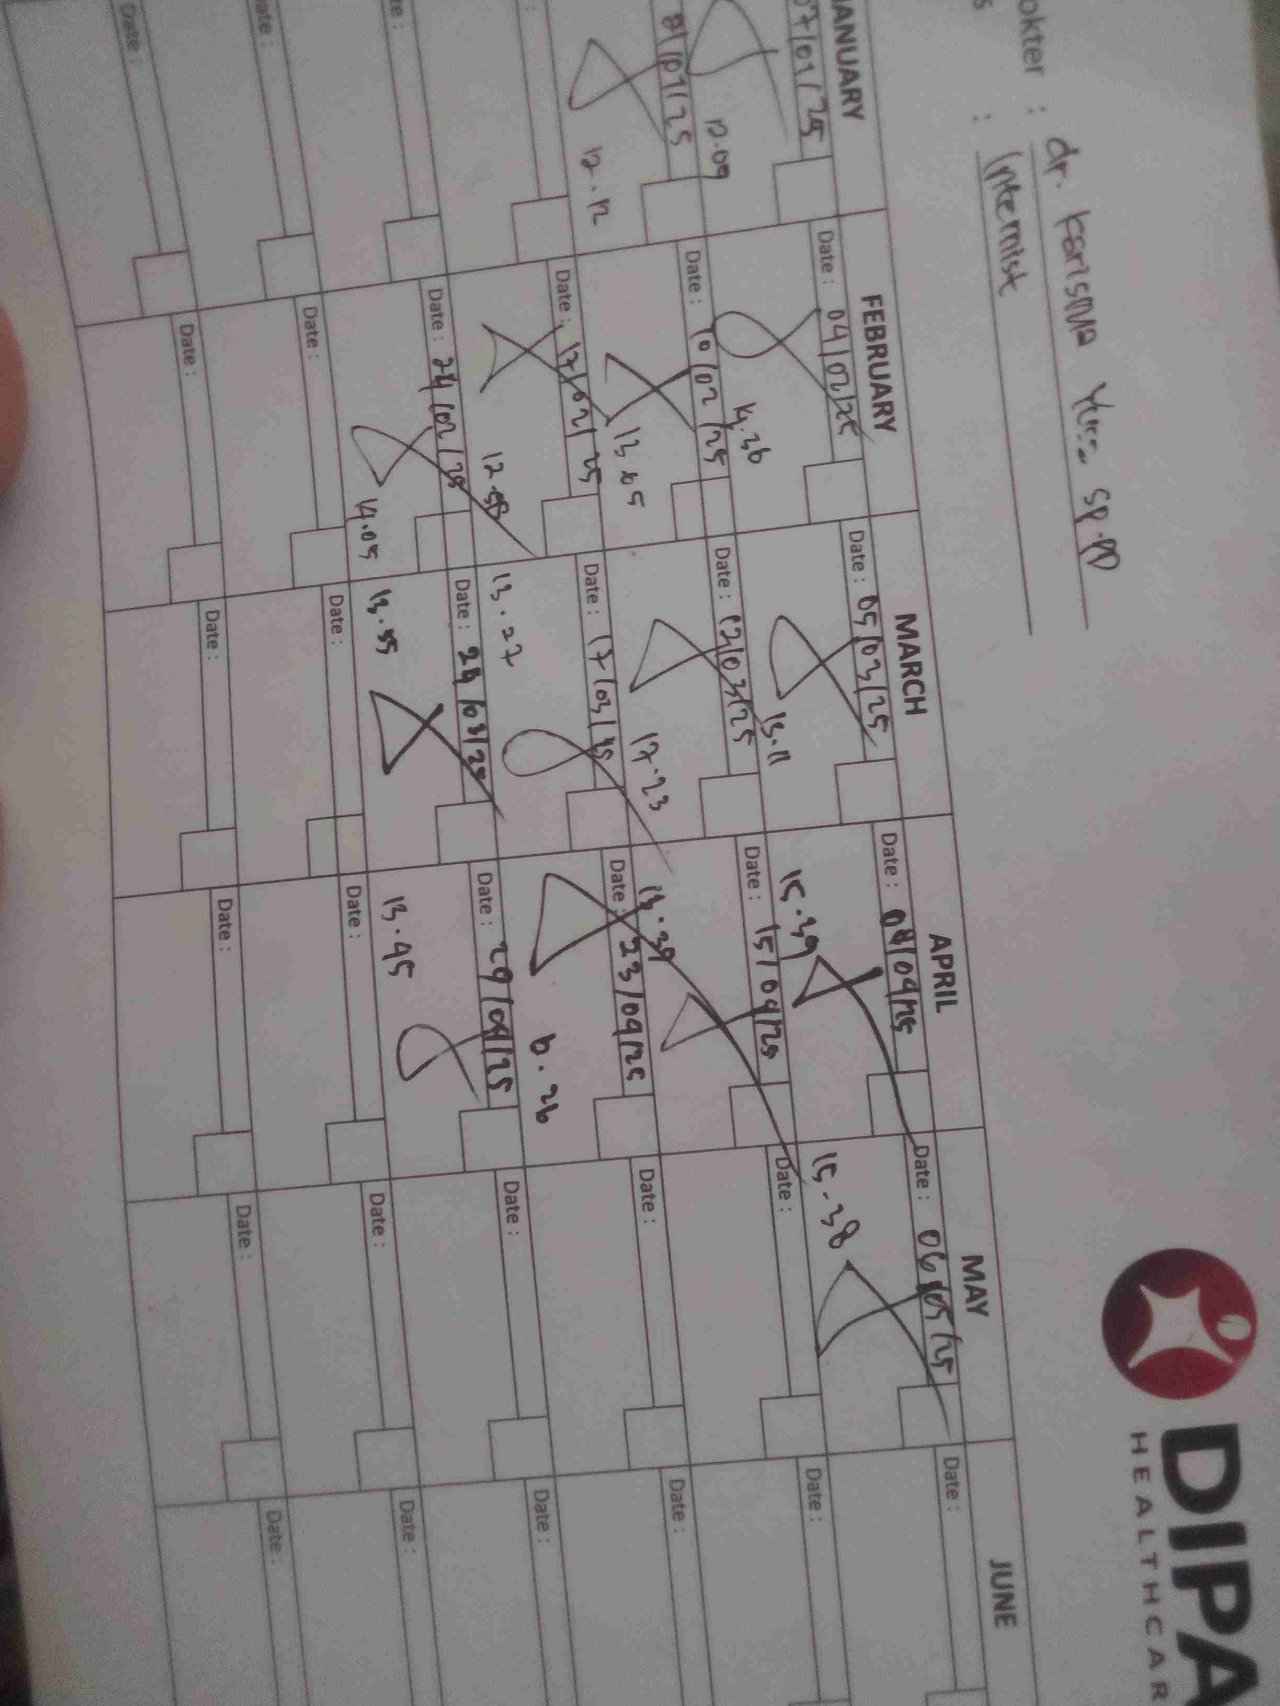 DIPA
HEALTHCAR
okter : dr. Karisma Sp.PD
s : Internist
JANUARY FEBRUARY MARCH APRIL MAY JUNE
07/01/25 Date : 04/02/25 Date : 05/03/25 Date : 08/04/25 Date : 06/05/25 Date :
12.09 14.36 13.11 15.39 15.38
/01/25 Date : 10/02/25 Date : 12/03/25 Date : 15/04/25 Date : Date :
12.12 13.05 17.23 13.39
: Date : 17/02/25 Date : 17/03/25 Date : 23/04/25 Date : Date :
12.58 13.27 26
te : Date : 24/02/25 Date : 24/03/25 Date : 29/04/25 Date : Date :
14.05 13.55 13.45
ate : Date : Date : Date : Date : Date :
Date : Date : Date : Date : Date : Date :